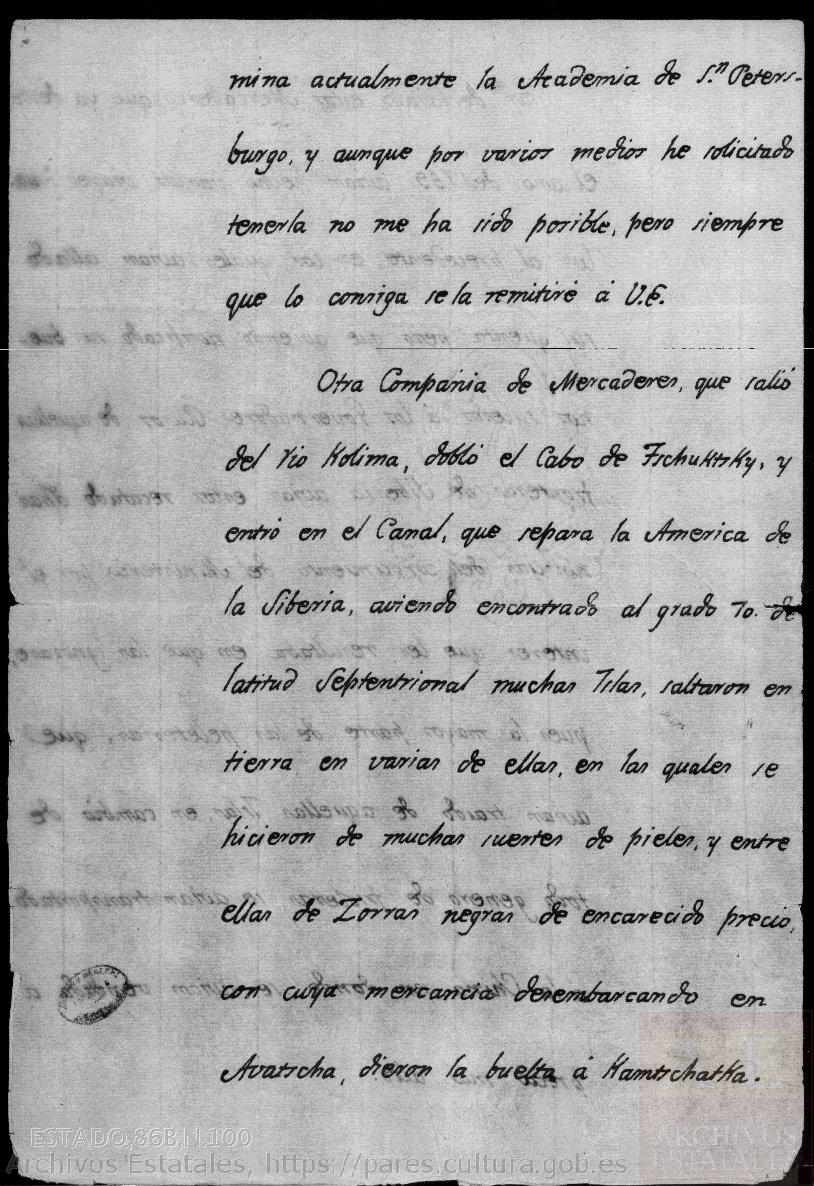 mina actualmente la Academia de S.ⁿ Peters-
burgo, y aunque por varios medios he solicitado
tenerla no me ha sido posible, pero siempre
que lo consiga se la remitiré á V.E.
Otra Compania de Mercaderes, que salió
del rio Kolima, dobló el Cabo de Tschuktsky, y
entró en el Canal, que separa la America de
la Siberia, aviendo encontrado al grado 70. de
latitud Septentrional muchas Islas, saltaron en
tierra en varias de ellas, en las quales se
hicieron de muchas suertes de pieles, y entre
ellas de Zorras negras de encarecido precio,
con cuya mercancia desembarcando en
Avatscha, dieron la buelta á Kamtschatka.
ESTADO,86B,N.100
Archivos Estatales, https://pares.cultura.gob.es
ARCHIVOS
ESTATALES